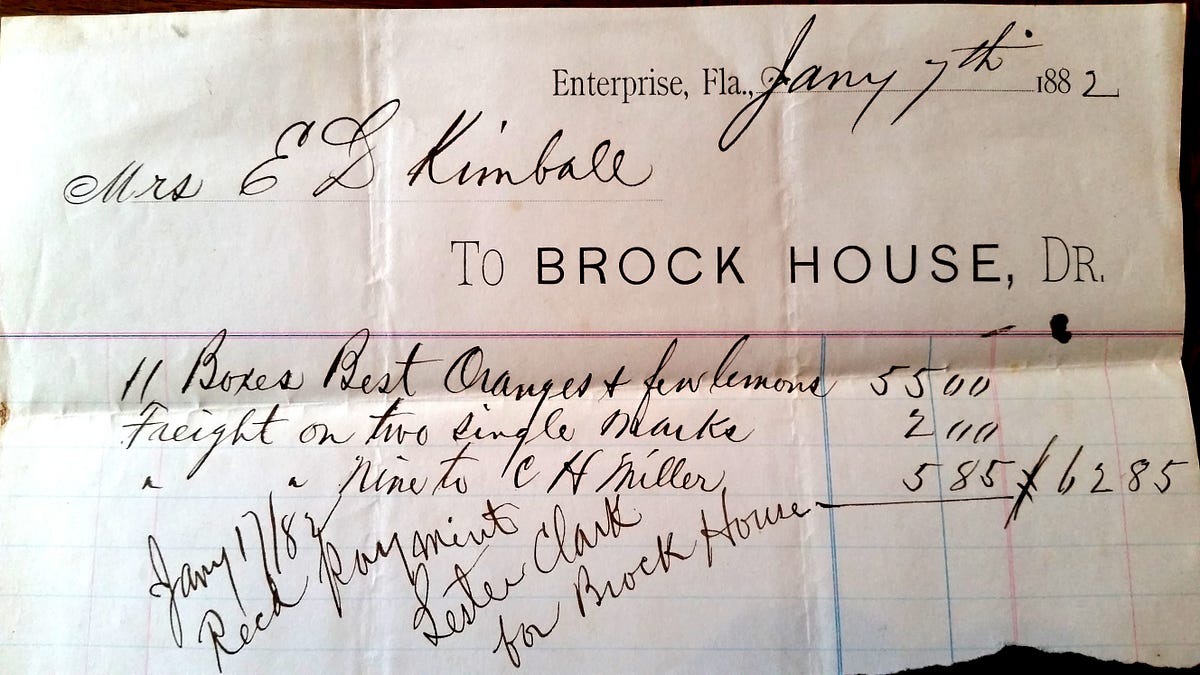 Enterprise, Fla., Jany 7th 1882
Mrs E D Kimball
To BROCK HOUSE, DR.
11 Boxes Best Oranges & few lemons 55 00
Freight on two single marks 2 00
" " Nine to C H Miller 5 85 62 85
Jany 17/82
Recd Payment
Lester Clark
for Brock House